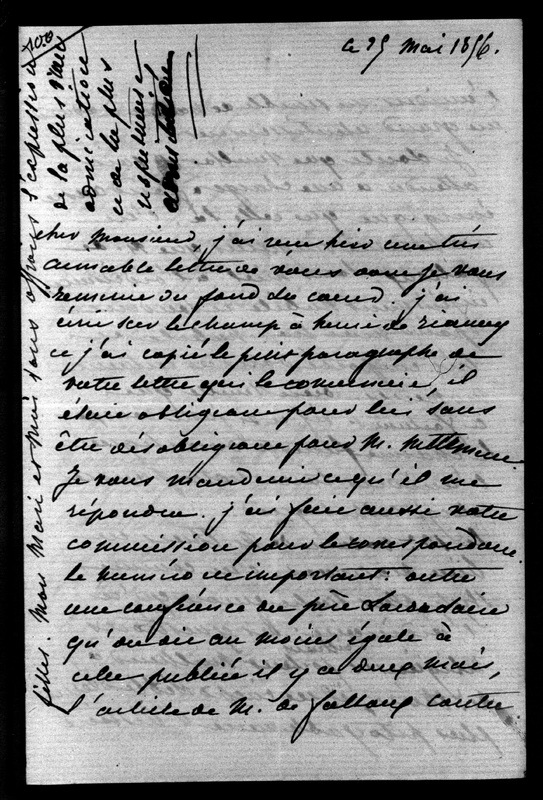 ce 25 Mai 1856.
cher Monsieur, j'ai reçu hier une très
aimable lettre de vous dont je vous
remercie du fond du coeur. j'ai
écrit sur le champ à henri de riancey
et j'ai copié le petit paragraphe de
votre lettre qui le concernait, il
était obligeant pour lui sans
être désobligeant pour M. nettement
Je vous manderai ce qu'il me
répondra. j'ai fait aussi votre
commission pour le correspondant
le numéro est important: outre
une conférence du père Lacordaire
qu'on dit au moins égale à
celle publiée il y a deux mois,
l'article de M. de falloux contre
filles. Mon Mari et moi vous offrons l'expression
de la plus vraie
admiration
et de la plus